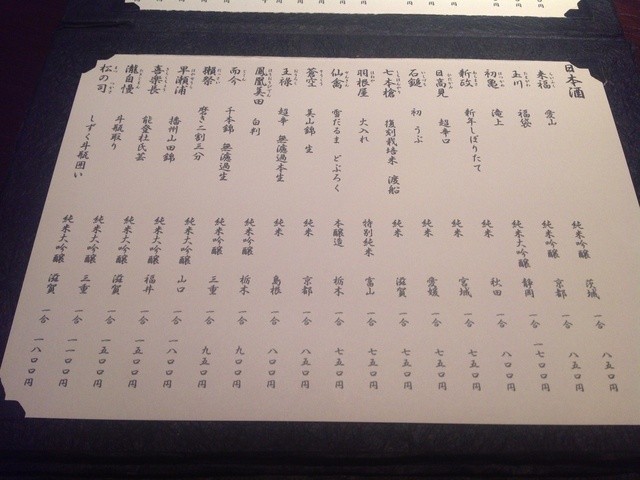 日本酒
来福 愛山 純米吟醸 茨城 一合 八五〇円
玉川 福袋 純米吟醸 京都 一合 八五〇円
初亀 滝上 純米大吟醸 静岡 一合 一七〇〇円
新政 新年しぼりたて 純米 秋田 一合 八〇〇円
日高見 超辛口 純米 宮城 一合 七五〇円
石鎚 初 うぶ 純米 愛媛 一合 七五〇円
七本槍 復刻栽培米 渡船 純米 滋賀 一合 七五〇円
羽根屋 火入れ 特別純米 富山 一合 七五〇円
仙禽 雪だるま どぶろく 本醸造 栃木 一合 七五〇円
蒼空 美山錦 生 純米 京都 一合 八五〇円
王禄 超辛 無濾過本生 純米 島根 一合 八〇〇円
鳳凰美田 白判 純米吟醸 栃木 一合 九〇〇円
而今 千本錦 無濾過生 純米吟醸 三重 一合 九五〇円
獺祭 磨き二割三分 純米大吟醸 山口 一合 一八〇〇円
早瀬浦 播州山田錦 純米大吟醸 福井 一合 一五〇〇円
喜樂長 能登杜氏芸 純米大吟醸 滋賀 一合 一五〇〇円
瀧自慢 斗瓶取り 純米大吟醸 三重 一合 一一〇〇円
松の司 しずく斗瓶囲い 純米大吟醸 滋賀 一合 一八〇〇円